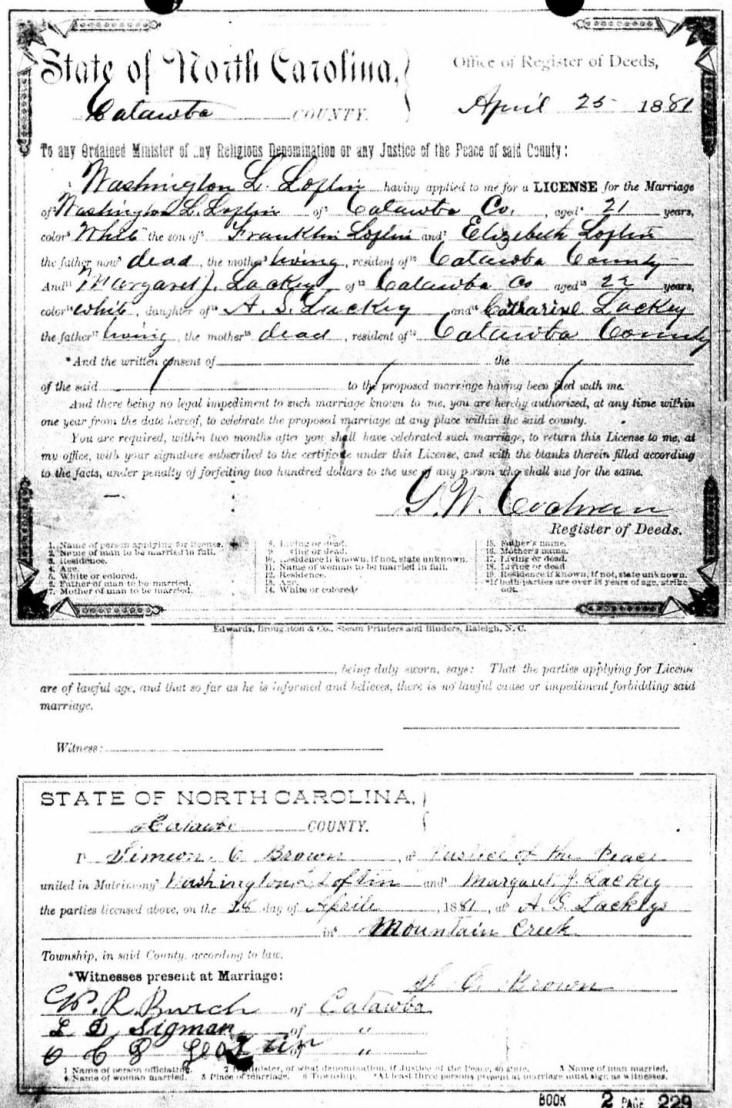 State of North Carolina,
Office of Register of Deeds,
Catawba COUNTY.
April 25 1881
To any Ordained Minister of any Religious Denomination or any Justice of the Peace of said County:
Washington L. Loflin having applied to me for a LICENSE for the Marriage
of Washington L. Loflin of Catawba Co. aged 21 years,
color White the son of Franklin Loflin and Elizibeth Loflin
the father now dead, the mother living, resident of Catawba County
And Margaret J. Lackey of Catawba Co aged 22 years,
color white, daughter of A. S. Lackey and Catharine Lackey
the father living, the mother dead, resident of Catawba County
*And the written consent of the
of the said to the proposed marriage having been filed with me.
And there being no legal impediment to such marriage known to me, you are hereby authorized, at any time within
one year from the date hereof, to celebrate the proposed marriage at any place within the said county.
You are required, within two months after you shall have celebrated such marriage, to return this License to me, at
my office, with your signature subscribed to the certificate under this License, and with the blanks therein filled according
to the facts, under penalty of forfeiting two hundred dollars to the use of any person who shall sue for the same.
G. W. Cochran
Register of Deeds.
1. Name of person applying for license.
2. Name of man to be married in full.
3. Residence.
4. Age.
5. White or colored.
6. Father of man to be married.
7. Mother of man to be married.
8. Living or dead.
9. Living or dead.
10. Residence if known, if not, state unknown.
11. Name of woman to be married in full.
12. Residence.
13. Age.
14. White or colored
15. Father's name.
16. Mother's name.
17. Living or dead.
18. Living or dead
19. Residence if known, if not, state unknown.
*If both parties are over 18 years of age, strike
out.
Edwards, Broughton & Co., Steam Printers and Binders, Raleigh, N. C.
, being duly sworn, says: That the parties applying for License
are of lawful age, and that so far as he is informed and believes, there is no lawful cause or impediment forbidding said
marriage.
Witness:
STATE OF NORTH CAROLINA,
Catawba COUNTY.
I Simeon C Brown, a Justice of the Peace
united in Matrimony Washington L Loftin and Margaret J. Lackey
the parties licensed above, on the 28 day of Aprile, 1881, at A. S. Lackeys
in Mountain Creek
Township, in said County, according to law.
S. C. Brown
*Witnesses present at Marriage:
W. R. Burch of Catawba
L D Sigman of "
of "
1 Name of person officiating. 2 If Minister, of what denomination, if Justice of the Peace, so state. 3 Name of man married.
4 Name of woman married. 5 Place of marriage. 6 Township. *At least three persons present at marriage must sign as witnesses.
BOOK 2 PAGE 229